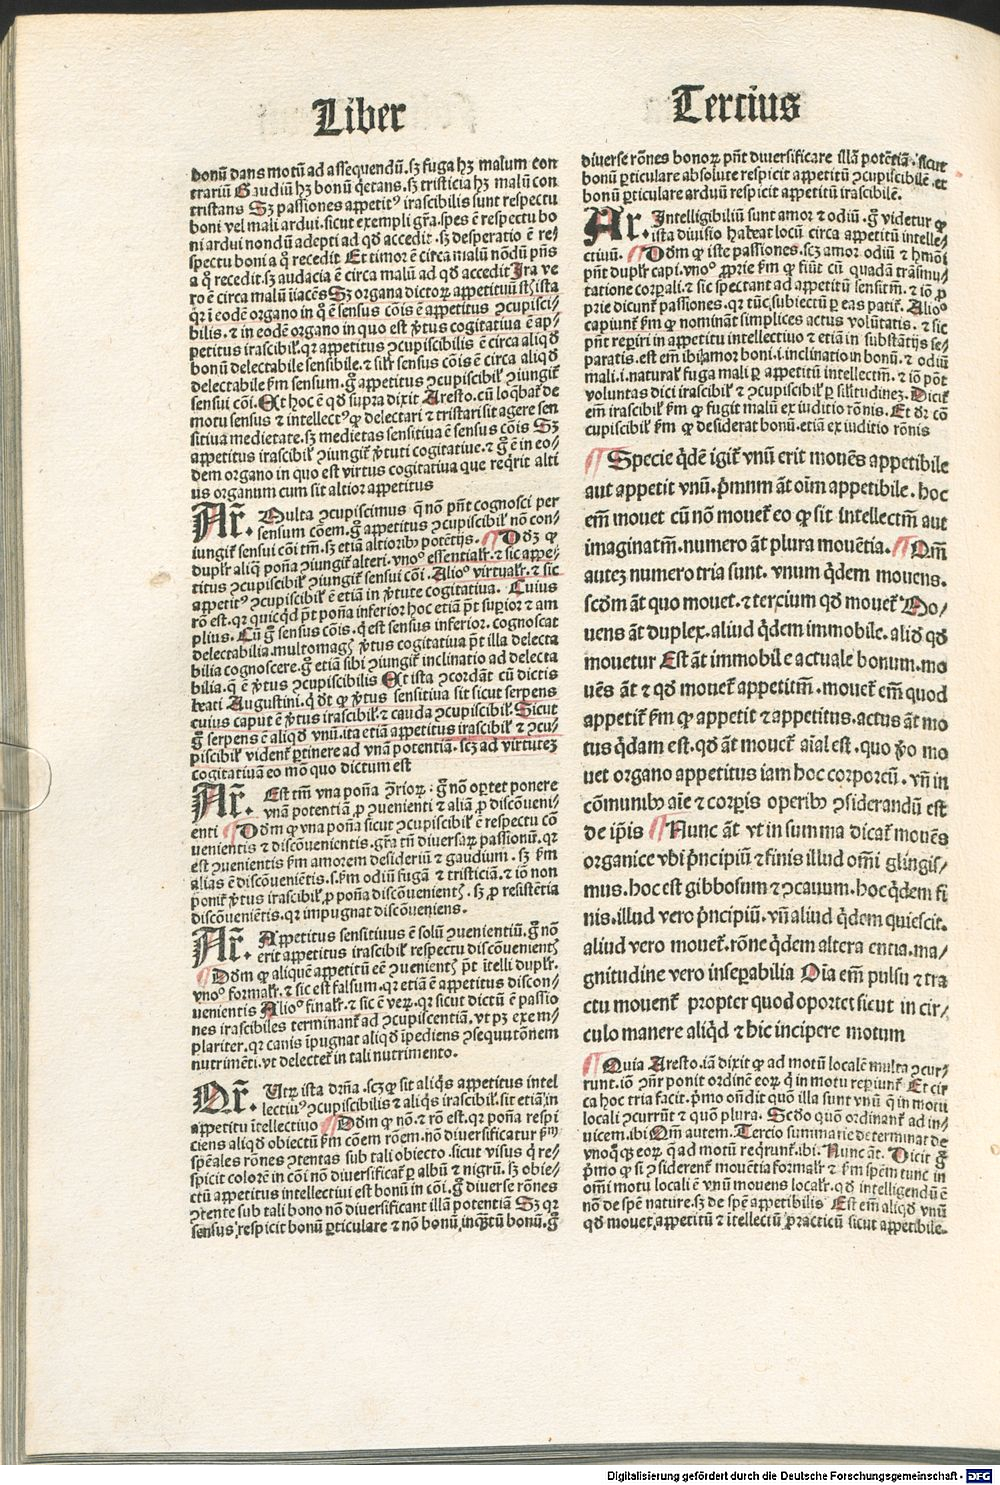 Liber
Tercius
bonū dans motū ad assequendū. sꝫ fuga hꝫ malum con
trariū Gaudiū hꝫ bonū q̄etans. sꝫ tristicia hꝫ malū con
tristans Sꝫ passiones appetitꝰ irascibilis sunt respectu
boni vel mali ardui. sicut exempli gr̄a. spes ē respectu bo
ni ardui nondū adepti ad qd̄ accedit. sꝫ desperatio ē re⸗
spectu boni a q̄ recedit Et timor ē circa malū nōdū pn̄s
a q̄ recedit. sꝫ audacia ē circa malū ad qd̄ accedit Ira ve
ro ē circa malū iiacēs Sꝫ organa dictoꝝ appetituū st̄ ista
qr̄ i eodē organo in q̄ ē sensus cōis ē appetitus ꝯcupisci⸗
bilis. ⁊ in eodē organo in quo est v̓tus cogitatiua ē ap⸗
petitus irascibiľ. qr appetitus ꝯcupiscibilis ē circa aliqd̄
bonū delectabile sensibile. ⁊ siľr sensus cōis ē circa aliqd̄
delectabile ẜm sensum. g̊ appetitus ꝯcupiscibiľ ꝯiungit̄
sensui cōi. Et hoc ē qd̄ supra dixit Aresto. cū loq̄bat̄ de
motu sensus ⁊ intellectꝰ ꝙ delectari ⁊ tristari sit agere sen
sitiua medietate. sꝫ medietas sensitiua ē sensus cōis Sꝫ
appetitus irascibiľ ꝯiungit̄ v̓tuti cogitatiue. ⁊ g̊ ē in eo⸗
dem organo in quo est virtus cogitatiua que reqrit alti
us organum cum sit altior appetitus
Ar̄. Multa ꝯcupiscimus q̄ nō pn̄t cognosci per
sensum cōem. g̊ appetitus ꝯcupiscibiľ nō con⸗
iungit̄ sensui cōi tm̄. sꝫ etiā altioribꝰ potētijs. ¶ Dd̄ꝫ ꝙ
dupľr aliq̄ pon̄a ꝯiungit̄ alteri. vnoº essentialľr. ⁊ sic appe⸗
titus ꝯcupiscibiľ ꝯiungit̄ sensui cōi. Alioº virtualľr. ⁊ sic
appetitꝰ ꝯcupiscibiľ ē etiā in v̓tute cogitatiua. Cuius
rō est. qr quicqd̄ pōt pon̄a inferior hoc etiā pōt supior ⁊ am
plius. Cū g̊ sensus cōis. q̄ est sensus inferior. cognoscat
delectabilia. multomagꝭ v̓tus cogitatiua pōt illa delecta
bilia cognoscere. g̊ etiā sibi ꝯiungit̄ inclinatio ad delecta
bilia. q̄ ē v̓tus ꝯcupiscibilis Et ista ꝯcordāt cū dictis
beati Augustini. q̄ dt̄ ꝙ v̓tus sensitiua sit sicut serpens
cuius caput ē v̓tus irascibiľ. ⁊ cauda ꝯcupiscibiľ. Sicut
g̊ serpens ē aliqd̄ vnū. ita etiā appetitus irascibiľ ⁊ ꝯcu⸗
piscibiľ vident̄ ꝑtinere ad vnā potentiā. scꝫ ad virtutez
cogitatiuā eo mō quo dictum est
Ar̄. Est tm̄ vna pon̄a ꝯrioꝝ. g̊ nō oꝑtet ponere
vnā potentiā ꝓ ꝯuenienti ⁊ aliā ꝓ discōueni⸗
enti ¶ Dd̄m ꝙ vna pon̄a sicut ꝯcupiscibiľ ē respectu cō
uenientis ⁊ discōuenientis. gr̄a tn̄ diuersaꝝ passionū. qr
est ꝯuenientis ẜm amorem desideriū ⁊ gaudium. sꝫ ẜm
alias ē discōueniētis. s. ẜm odiū fugā ⁊ tristiciā. ⁊ iō non
ponit̄ v̓tus irascibiľ ꝓ pon̄a discōuenientꝭ. sꝫ ꝓ resistētia
discōueniētis. qr impugnat discōueniens.
Ar̄. Appetitus sensitiuus ē solū ꝯuenientiū. g̊ nō
erit appetitus irascibiľ respectu discōuenientꝭ
¶ Dd̄m ꝙ aliquē appetitū eē ꝯuenientꝭ pōt itelli dupľr.
vnoº formalľr. ⁊ sic est falsum. qr etiā ē appetitus discon⸗
uenientis Alioº finalľr. ⁊ sic ē veꝝ. qr sicut dictū ē passio
nes irascibiles terminant̄ ad ꝯcupiscentiā. vt pꝫ exem⸗
plariter. qr canis īpugnat aliqd̄ īpediens ꝯsequutōnem
nutrimēti. vt delectet̄ in tali nutrimento.
Qr̄. Utꝝ ista dr̄na. scꝫ ꝙ sit aliqis appetitus intel
lectiuꝰ ꝯcupiscibilis ⁊ aliqis irascibiľ. sit etiā in
appetitu itellectiuo ¶ Dd̄m ꝙ nō. ⁊ rō est. qr pon̄a respi
ciens aliqd̄ obiectū ẜm cōem rōem. nō diuersificatur ẜm
sp̄eales rōnes ꝯtentas sub tali obiecto. sicut visus q̄ re⸗
spicit colorē in cōi nō diuersificat̄ ꝑ albū ⁊ nigrū. sꝫ obie⸗
ctū appetitus intellectiui est bonū in cōi. g̊ diuerse rōnes
ꝯtente sub tali bono nō diuersificant illā potentiā Sꝫ qr
sensus respicit bonū ꝑticulare ⁊ nō bonū, inqꝫtū bonū. g̊
diuerse rōnes bonoꝝ pn̄t diuersificare illā potētiā. sicut
bonū ꝑticulare absolute respicit appetitū ꝯcupiscibilē. et
bonū ꝑticulare arduū respicit appetitū irascibilē.
Ar̄. Intelligibiliū sunt amor ⁊ odiū. g̊ videtur ꝙ
ista diuisio habeat locū circa appetitū intelle⸗
ctiuū. ¶ Dd̄m ꝙ iste passiones. scꝫ amor odiū ⁊ hm̄oi
pn̄t dupľr capi. vnoº ꝓprie ẜm ꝙ fiūt cū quadā trāsmu⸗
tatione corꝑali. ⁊ sic spectant ad appetitū sensitm̄. ⁊ iō ꝓ
prie dicunt̄ passiones. qr tūc subiectū ꝑ eas patit̄. Alioº
capiunt̄ ẜm ꝙ nomināt simplices actus volūtatis. ⁊ sic
pn̄t reꝑiri in appetitu intellectiuo ⁊ etiā in substātijs se⸗
paratis. est em̄ ibi amor boni. i. inclinatio in bonū. ⁊ odiū
mali. i. naturaľ fuga mali ꝑ appetitū intellectm̄. ⁊ iō pōt
voluntas dici irascibiľ ⁊ ꝯcupiscibiľ ꝑ siľitudinez. Dicit̄
em̄ irascibiľ ẜm ꝙ fugit malū ex iuditio rōnis. Et dr̄ cō
cupiscibiľ ẜm ꝙ desiderat bonū. etiā ex iuditio rōnis
¶ Specie qd̄ē igit̄ vnū erit mouēs appetibile
aut appetit vnū. p̓mum āt oīm appetibile. hoc
em̄ mouet cū nō mouet̄ eo ꝙ sit intellectm̄ aut
imaginatm̄. numero āt plura mouētia. ¶ Om̄
autez numero tria sunt. vnum q̓dem mouens.
scd̄m āt quo mouet. ⁊ tercium qd̄ mouet̄ Mo⸗
uens āt duplex. aliud q̓dem immobile. aliđ qd̄
mouetur Est āt immobile actuale bonum. mo
uēs āt ⁊ qd̄ mouet̄ appetitm̄. mouet̄ em̄ quod
appetit̄ ẜm ꝙ appetit ⁊ appetitus. actus āt mo
tus q̓dam est. qd̄ āt mouet̄ aīal est. quo v̓o mo
uet organo appetitus iam hoc corporeū. vn̄ in
cōmunibꝰ aīe ⁊ corꝑis operibꝰ ꝯsiderandū est
de ip̄is ¶ Nunc āt vt in summa dicat̄ mouēs
organice vbi p̓ncipiū ⁊ finis illud om̄i glingis⸗
mus. hoc est gibbosum ⁊ ꝯcauum. hoc q̓dem fi
nis. illud vero p̓ncipiū. vn̄ aliud q̓dem quiescit.
aliud vero mouet̄. rōne q̓dem altera entia. ma⸗
gnitudine vero inseꝑabilia Oīa em̄ pulsu ⁊ tra
ctu mouent̄ propter quod oportet sicut in cir⸗
culo manere aliqd̄ ⁊ hic incipere motum
¶ Quia Aresto. iā dixit ꝙ ad motū localē multa ꝯcur⸗
runt. iō ꝯn̄r ponit ordinē eoꝝ q̄ in motu reꝑiunt̄ Et cir
ca hoc tria facit. p̓mo on̄dit quō illa sunt vnū q̄ in motū
locali ꝯcurrūt ⁊ quō plura. Scd̄o quō ordinant̄ ad in⸗
uicem. ibi Om̄ autem. Tercio summarie determinat de
vnoqꝫ eoꝝ q̄ ad motū reqrunt̄. ibi. Nunc āt. Dicit g̊
p̓mo ꝙ si ꝯsiderent̄ mouētia formalľr ⁊ ẜm sp̄em tunc in
om̄i motu locali ē vnū mouens localľr. qd̄ intelligendū ē
nō de sp̄e nature. sꝫ de sp̄e appetibilis Est em̄ aliqd̄ vnū
qd̄ mouet appetitū ⁊ itellectū practicū sicut appetibile.
Digitalisierung gefördert durch die Deutsche Forschungsgemeinschaft - DFG